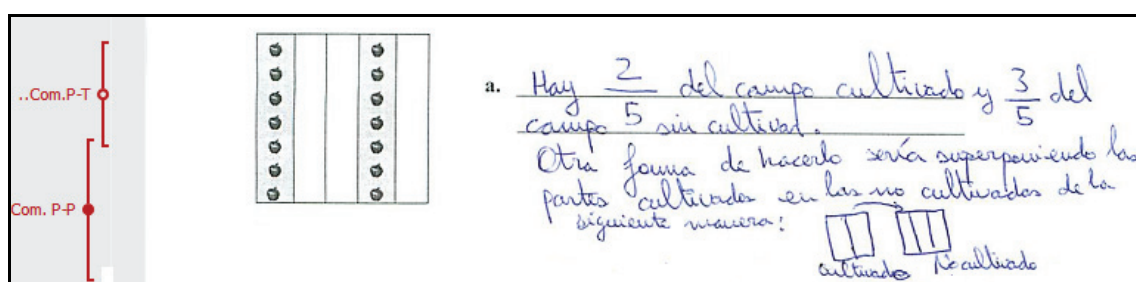 ..Com.P-T
Com. P-P
a. Hay 2/5 del campo cultivado y 3/5 del
campo sin cultivar.
Otra forma de hacerlo sería superponiendo las
partes cultivadas en las no cultivadas de la
siguiente manera:
cultivado No cultivado